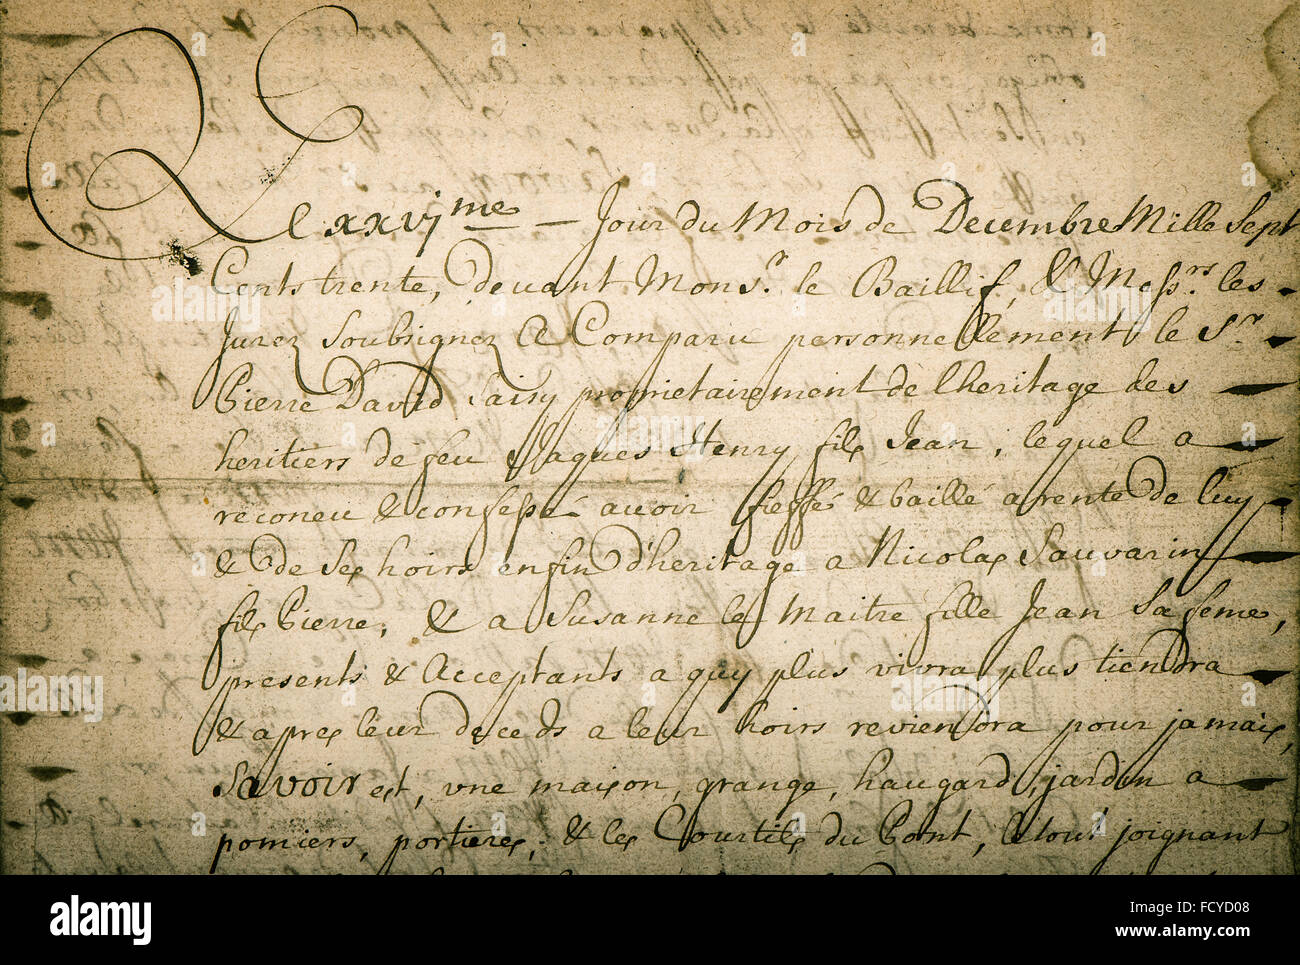 Le xxvj.me Jour du Mois de Decembre Mille Sept
Cents trente, devant Mons.r le Baillif, & Mess.rs les
Jurez Soubsignez Est Comparu personnellement le S.r
Pierre David Saisy proprietairement de l'heritage des
heritiers de feu Jaques Henry fils Jean, lequel a
reconeu & confessé avoir fieffé & baillé a rente de luy
& de Ses hoirs enfin d'heritage a Nicolas Sauvarin
fils Pierre, & a Susanne le Maitre fille Jean Sa feme,
presents & Acceptants a quy plus vivra plus tiendra
& apres leur deceds a leur hoirs reviendra pour jamais,
Savoir est, vne maison, grange, haugard, jardin a
pomiers, portieres, & les Courtils du Pont, le tout joignant
alamy
Image ID: FCYD08
www.alamy.com